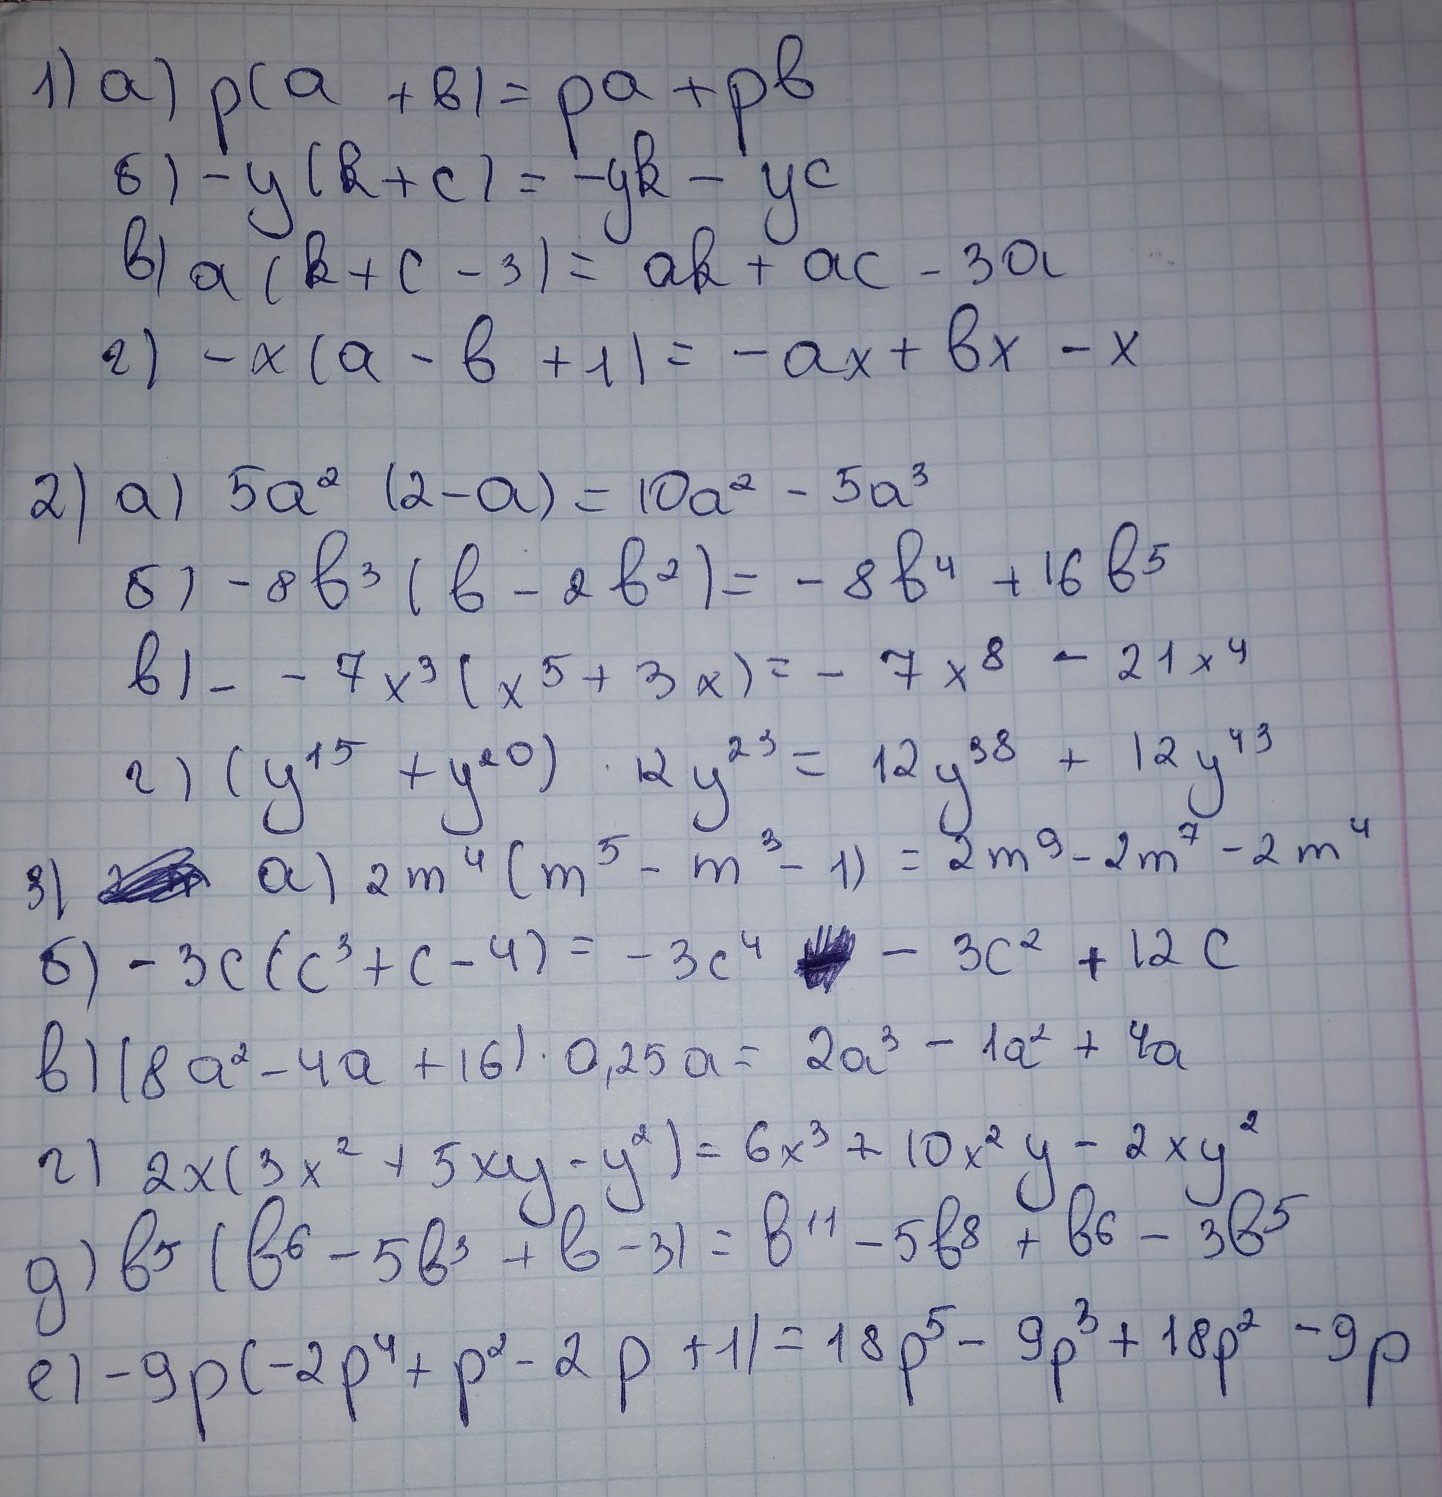 1) а) p(a + в) = pa + pв
б) -y(k+c) = -yk - yc
в) a(k+c-3) = ak + ac - 3a
г) -x(a - в + 1) = -ax + вx - x
2) а) 5a² (2-a) = 10a² - 5a³
б) -8в³ (в - 2в²) = -8в⁴ + 16в⁵
в) - - 7x³(x⁵ + 3x) = - 7x⁸ - 21x⁴
г) (y¹⁵ + y²⁰) · 12y²³ = 12y³⁸ + 12y⁴³
3) а) 2m⁴(m⁵ - m³ - 1) = 2m⁹ - 2m⁷ - 2m⁴
б) -3c(c³ + c - 4) = -3c⁴ - 3c² + 12c
в) (8a² - 4a + 16) · 0,25a = 2a³ - 1a² + 4a
г) 2x(3x² + 5xy - y²) = 6x³ + 10x²y - 2xy²
д) в⁵(в⁶ - 5в³ + в - 3) = в¹¹ - 5в⁸ + в⁶ - 3в⁵
е) -9p(-2p⁴ + p² - 2p + 1) = 18p⁵ - 9p³ + 18p² - 9p